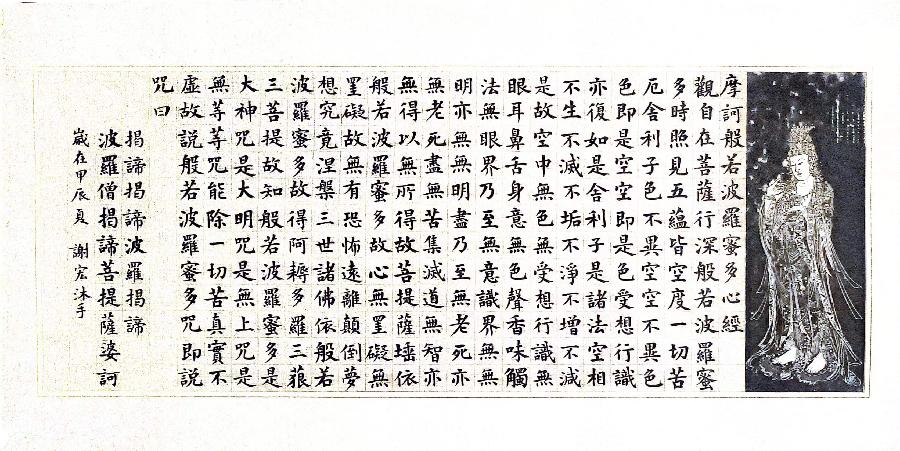 摩訶般若波羅蜜多心經
觀自在菩薩行深般若波羅蜜
多時照見五蘊皆空度一切苦
厄舍利子色不異空空不異色
色即是空空即是色受想行識
亦復如是舍利子是諸法空相
不生不滅不垢不淨不增不減
是故空中無色無受想行識無
眼耳鼻舌身意無色聲香味觸
法無眼界乃至無意識界無無
明亦無無明盡乃至無老死亦
無老死盡無苦集滅道無智亦
無得以無所得故菩提薩埵依
般若波羅蜜多故心無罣礙無
罣礙故無有恐怖遠離顛倒夢
想究竟涅槃三世諸佛依般若
波羅蜜多故得阿耨多羅三藐
三菩提故知般若波羅蜜多是
大神咒是大明咒是無上咒是
無等等咒能除一切苦真實不
虛故說般若波羅蜜多咒即說
咒曰
揭諦揭諦波羅揭諦
波羅僧揭諦菩提薩婆訶
歲在甲辰夏 謝宏沐手